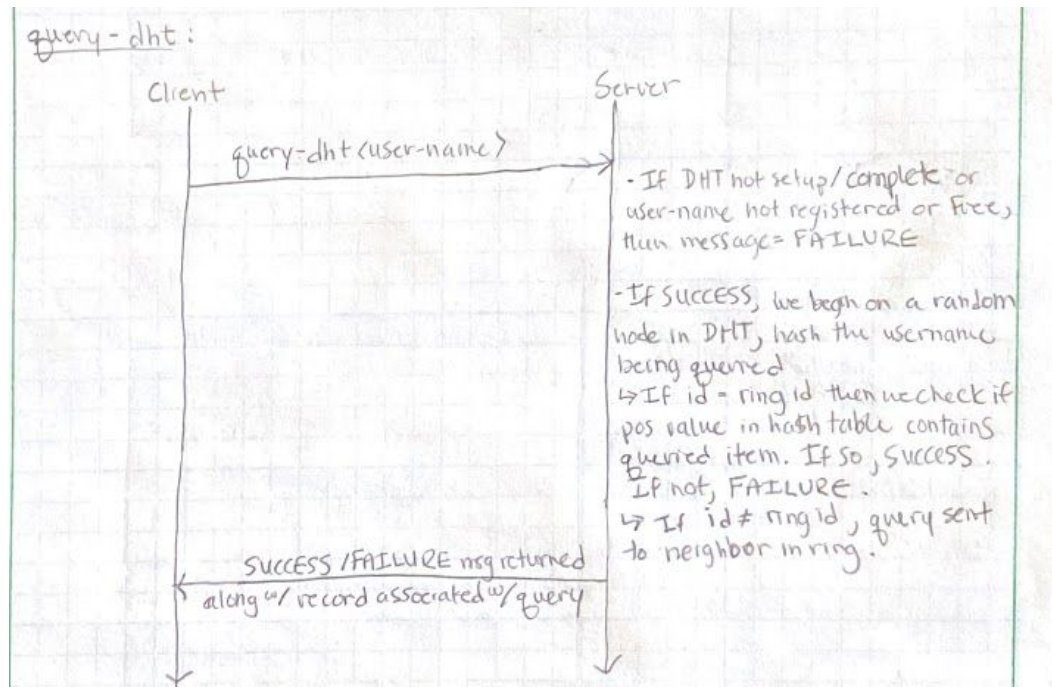 query-dht:
Client
Server
query-dht <user-name>
- If DHT not setup/complete or
user-name not registered or Free,
then message = FAILURE
- If SUCCESS, we begin on a random
node in DHT, hash the username
being queried
↳ If id = ring id then we check if
pos value in hash table contains
queried item. If so, SUCCESS.
If not, FAILURE.
↳ If id ≠ ring id, query sent
to neighbor in ring.
SUCCESS/FAILURE msg returned
along w/ record associated w/ query